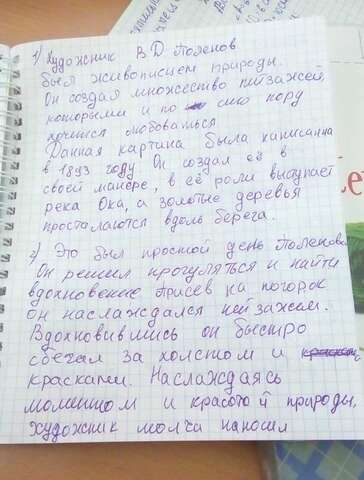 1) Художник В. Д. Поленов
был живописцем природы.
Он создал множество пейзажей,
которыми и по сию пору
хочется любоваться
Данная картина была написанна
в 1893 году. Он создал её в
своей манере, в её роли выступает
река Ока, а золотые деревья
простилаются вдоль берега.
2) Это был простой день Поленова
Он решил прогуляться и найти
вдохновение Присев на погорок
он наслаждался пейзажем.
Вдохновившись он быстро
сбегал за холстом и
красками. Наслаждаясь
моментом и красотой природы,
художник молча наносил